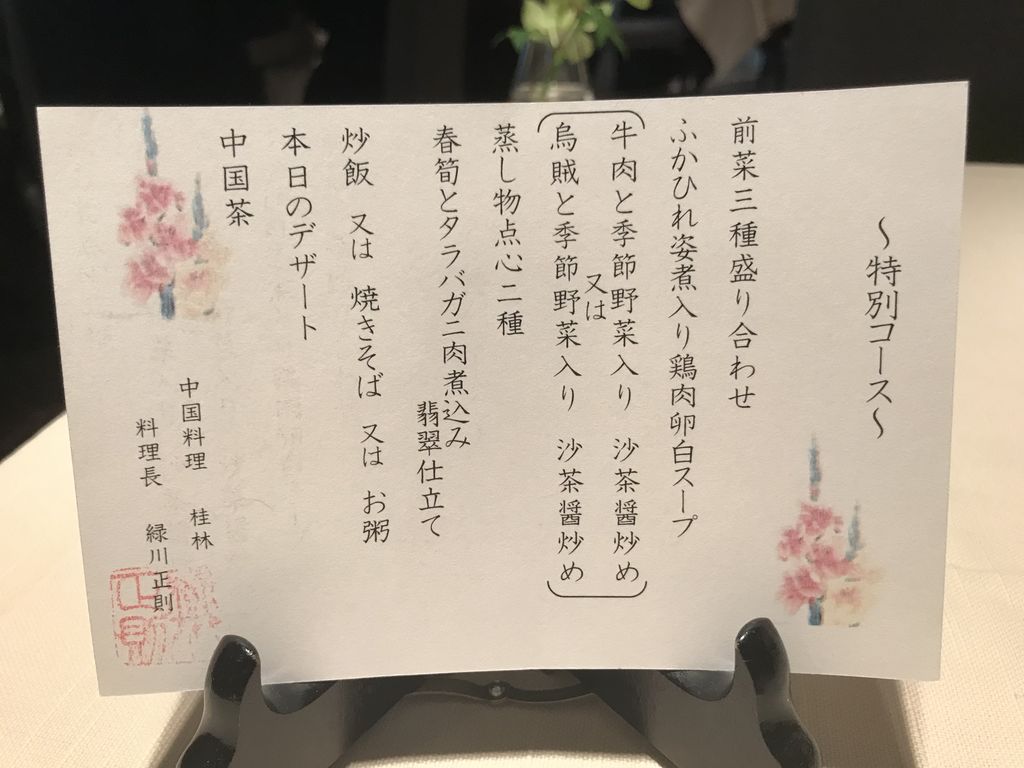 ～特別コース～
前菜三種盛り合わせ
ふかひれ姿煮入り鶏肉卵白スープ
牛肉と季節野菜入り 沙茶醤炒め
又は
烏賊と季節野菜入り 沙茶醤炒め
蒸し物点心二種
春筍とタラバガニ肉煮込み
翡翠仕立て
炒飯 又は 焼きそば 又は お粥
本日のデザート
中国茶
中国料理 桂林
料理長 緑川正則